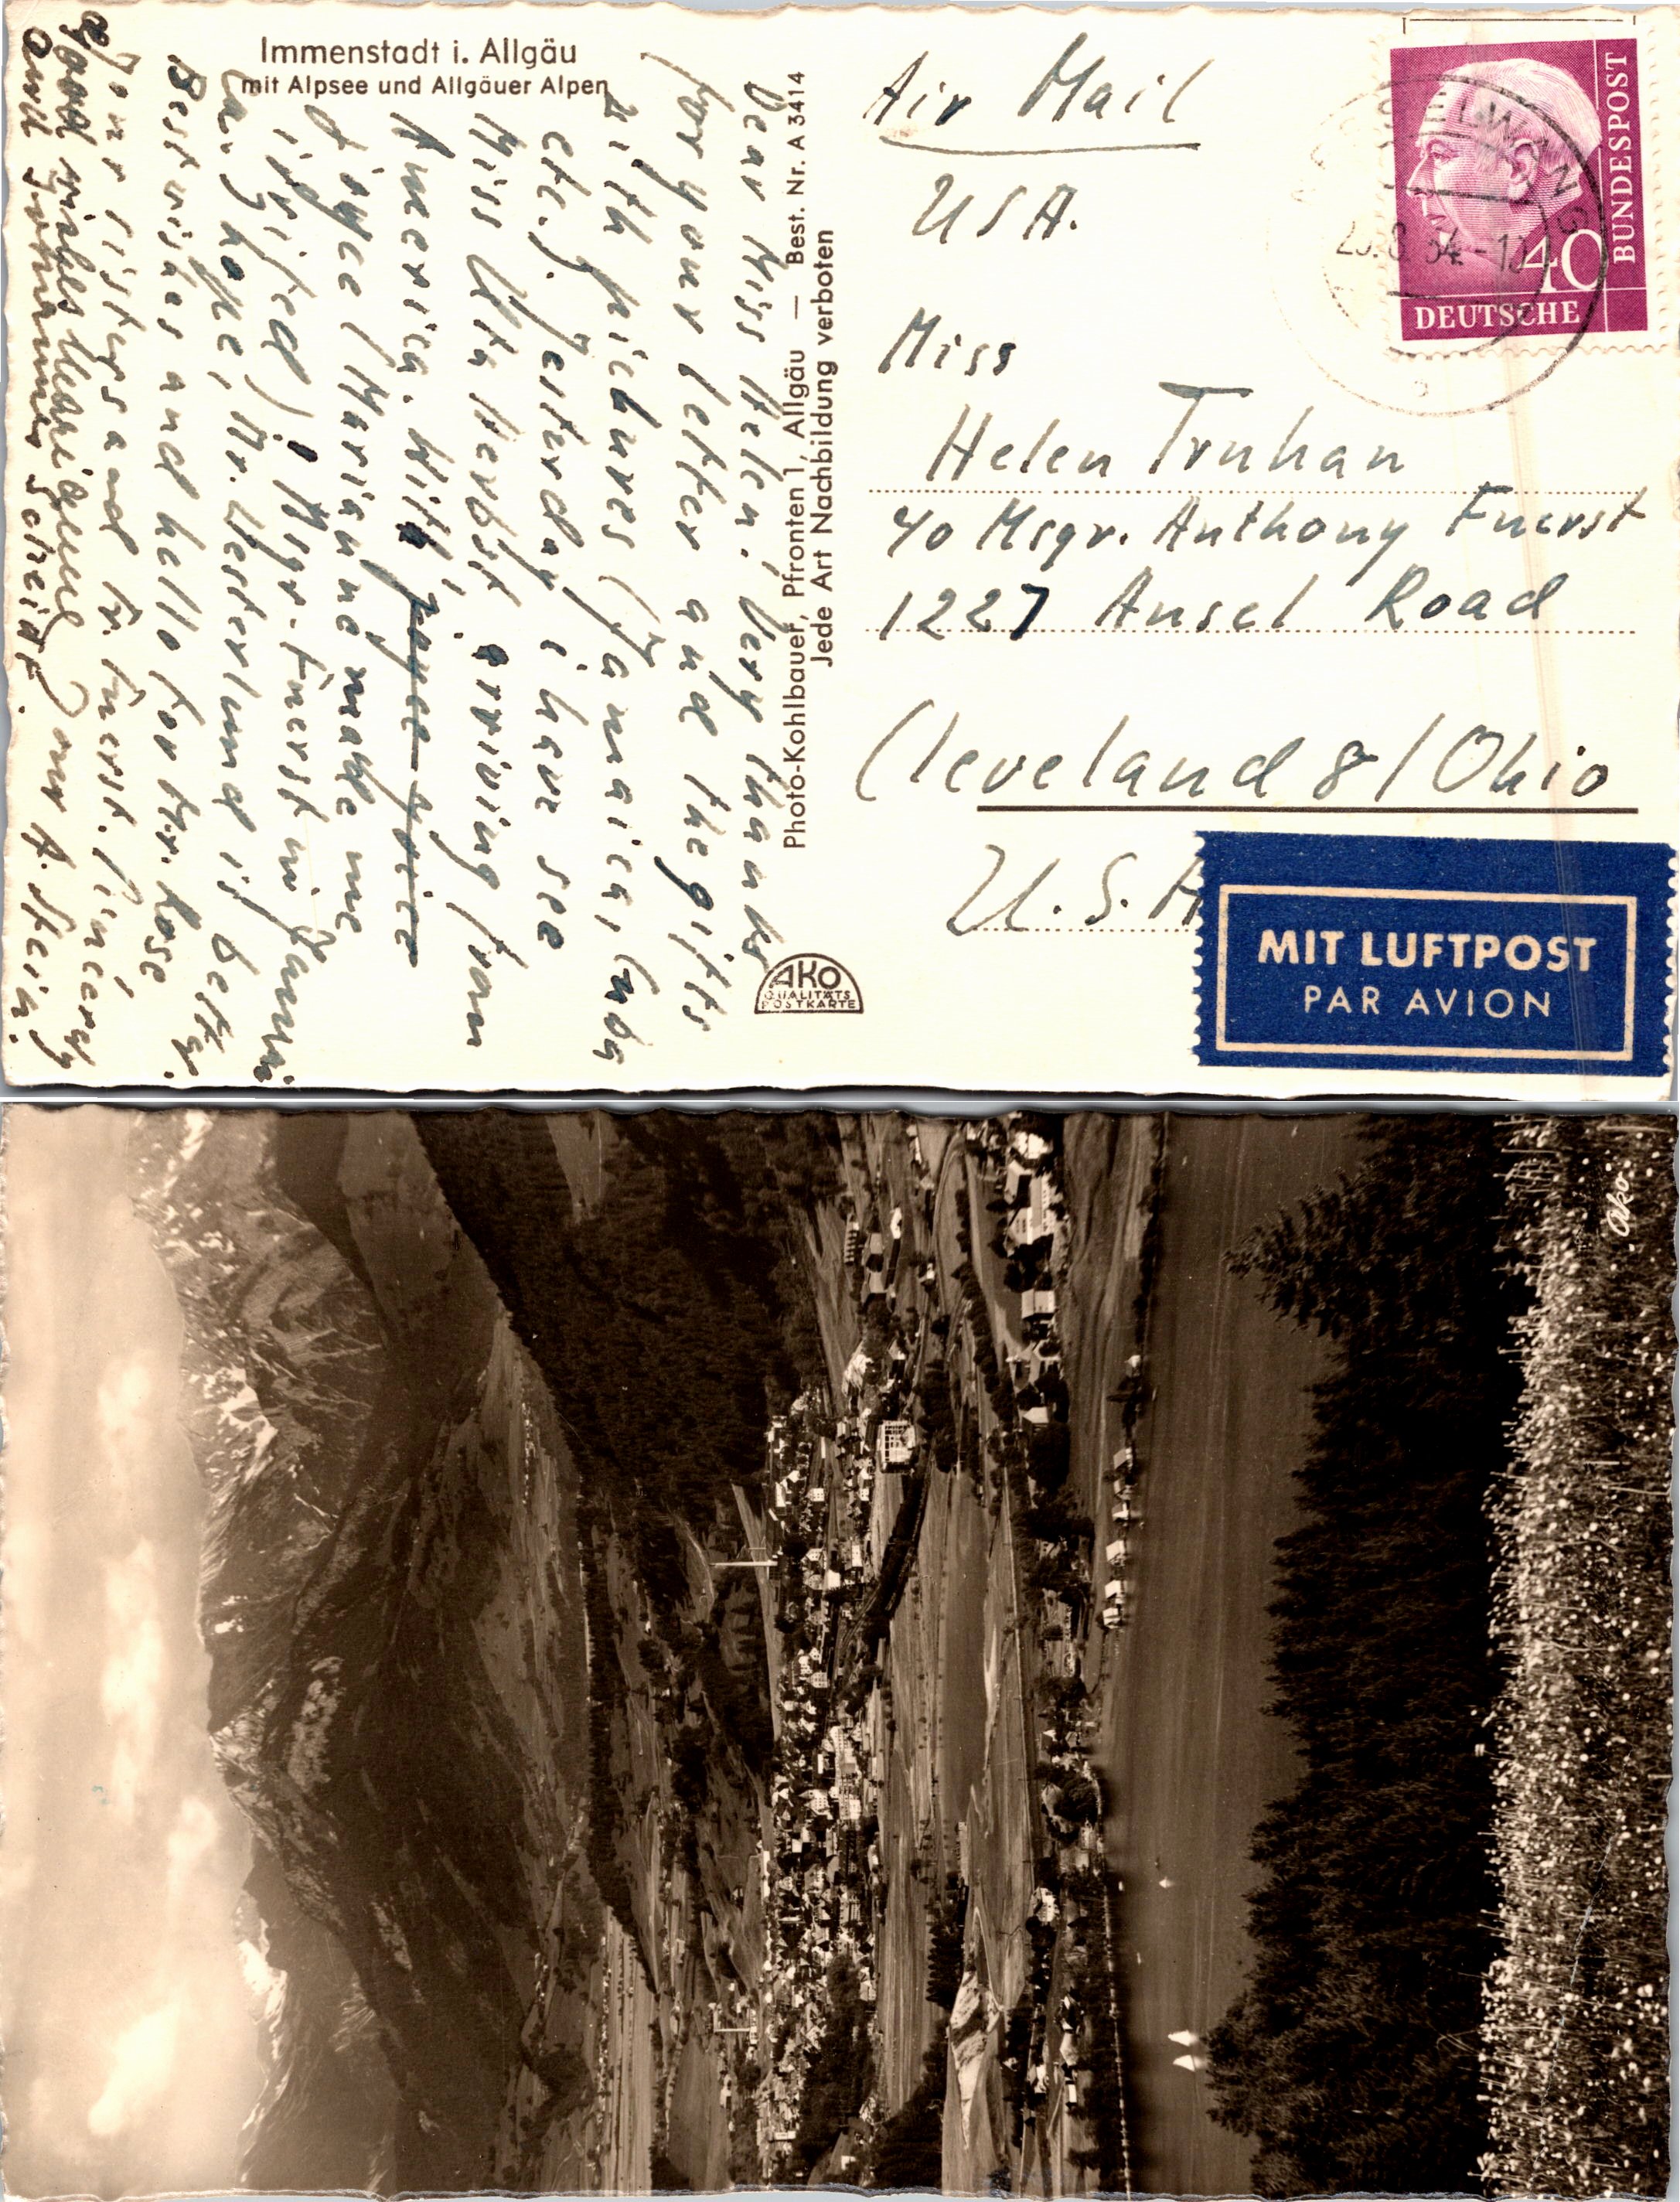 Immenstadt i. Allgäu
mit Alpsee und Allgäuer Alpen
Dear Miss Helen! Very thanks
for your letter and the gifts
with pictures (Jamaica, Cuba
etc.). Yesturday i have see
Miss Uta Herbst arriving from
America. With
Joyce (Marianne make me
i Msgr. Fuerst in
i hope, Mr. Vesterlund is better.
Best wishes and hello for Mr. Rose
Your sisters and Fr. Fuerst. Sincerely
your A. Stein.
Good wishes
and
Photo-Kohlbauer, Pfronten 1, Allgäu — Best. Nr. A 3414
Jede Art Nachbildung verboten
AKO
QUALITÄTS
POSTKARTE
Air Mail
USA.
40
DEUTSCHE
BUNDESPOST
Miss
Helen Truhan
c/o Msgr. Anthony Fuerst
1227 Ansel Road
Cleveland 8/Ohio
U.S.A
MIT LUFTPOST
PAR AVION
Ako